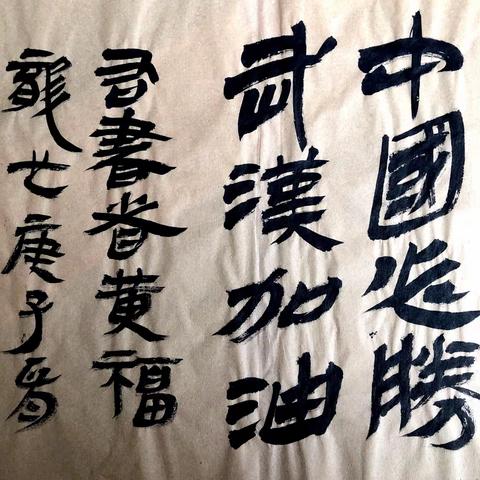 中國必勝
武漢加油
書者黄福
龍庚子春